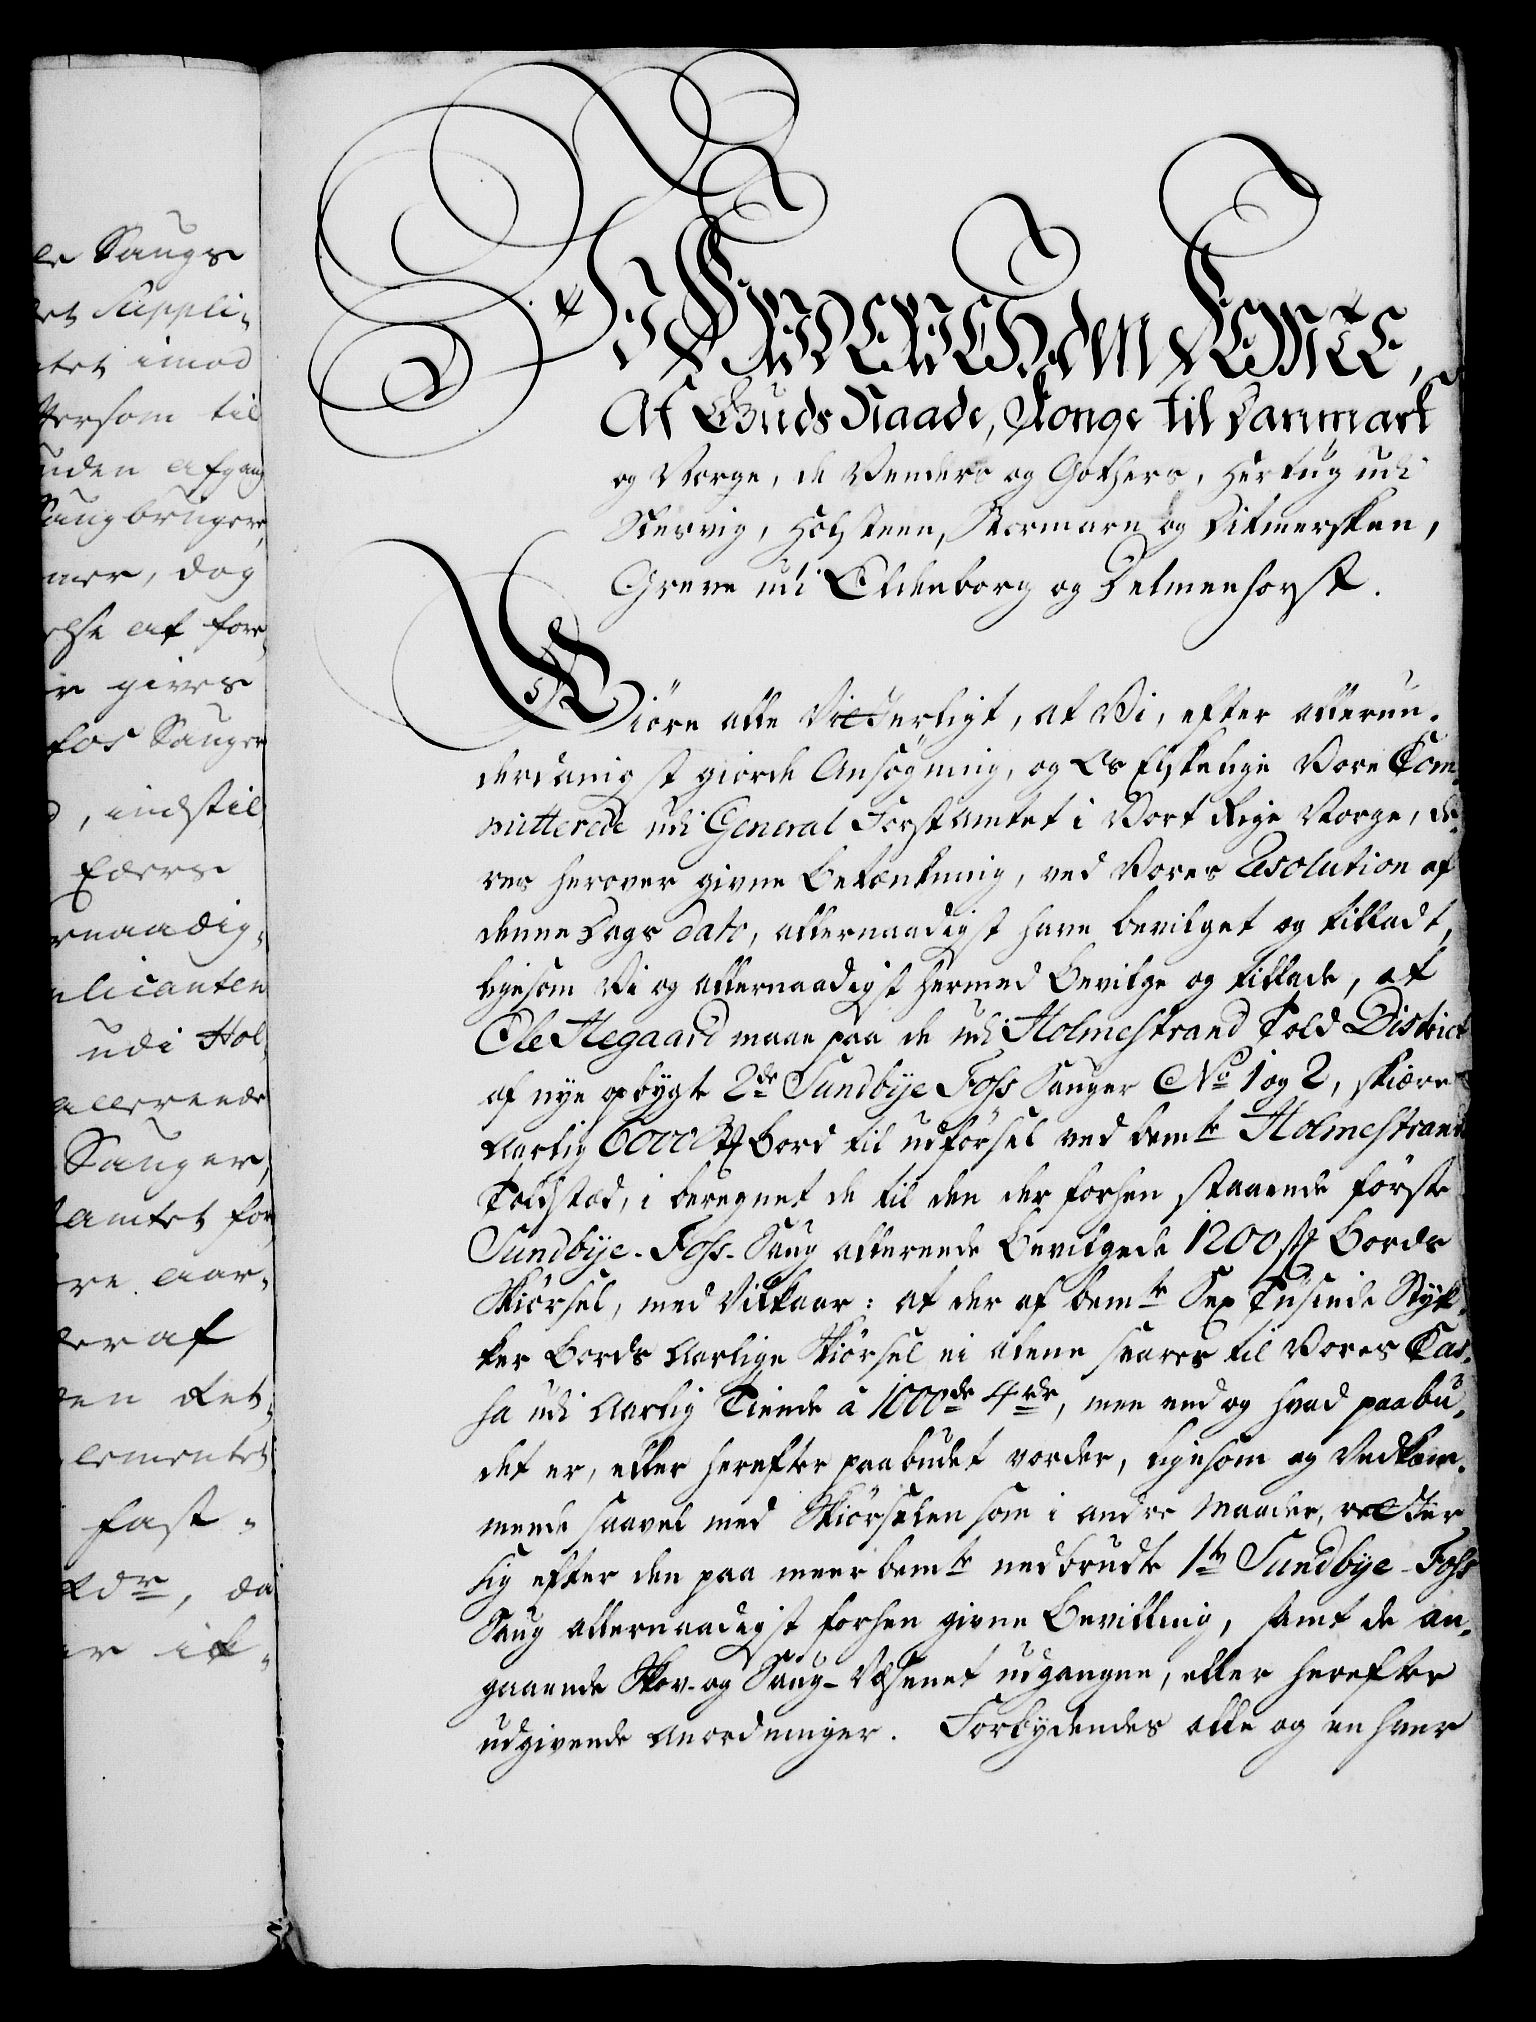 le Sauge
det Suppli-
atet imod
ersom til
uden afgang
Saugbrugere,
mer, dog
else af fore-
ir gives
fos Sauger
, indstil
Eders
rnaadig-
plicanten
udi Hol-
allereede
Sauger,
tamtet for
re aar-
deraf
den Ret-
lementet
fast-
Rdr, da
er ik-
Vi FRIDERICH den FEMTE,
Af Guds Naade, Konge til Danmark
og Norge, de Venders og Gothers, Hertug udi
Slesvig, Holsteen, Stormarn og Ditmersken,
Greve udi Oldenborg og Delmenhorst.
Giöre alle Vitterligt, at Vi, efter allerun-
derdanigst giorde Ansögning, og Os Elskelige Vore Com-
mitterede udi General Forstamtet i Vort Rige Norge, de-
res herover givne Betænkning, ved Vores Resolution af
denne Dags Dato, allernaadigst have bevilget og tilladt,
ligesom Vi og allernaadigst hermed Bevilge og tillade, at
Ole Aegaard maae paa de udi Holmestrand Told District
af nye opbygte 2de Sundbye Foss Sauger No 1 og 2, skiære
Aarlig 6000 St Bord til udförsel ved bemte Holmestrand
Toldsted, i beregnet de til den der forhen staaende förste
Sundbye-Foss-Saug allereede Bevilgede 1200 St Bords
Skiörsel, med Vilkaar: at der af bemte Sex Tusinde Styk-
ker Bords Aarlige Skiörsel ei alene svares til Vores Cas-
sa udi Aarlig Tiende à 1000de 4 rdr, men end og hvad paabu-
det er, eller herefter paabudet vorder, ligesom og Vedkom-
mende saavel med Skiörselen som i andre Maader, retter
sig efter den paa meerbemte nedbrudte 1ste Sundbye-Foss
Saug allernaadigst forhen givne Bevilling, samt de an-
gaaende Skov- og Saug-Væsenet udgangne, eller herefter
udgivende Anordninger. Forbydendes alle og enhver